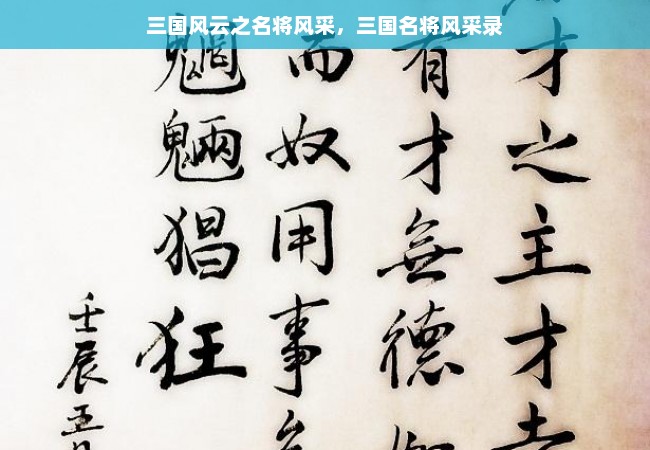 三国风云之名将风采，三国名将风采录
才之主才
有才無德
而奴用事
魍魎猖狂
壬辰五